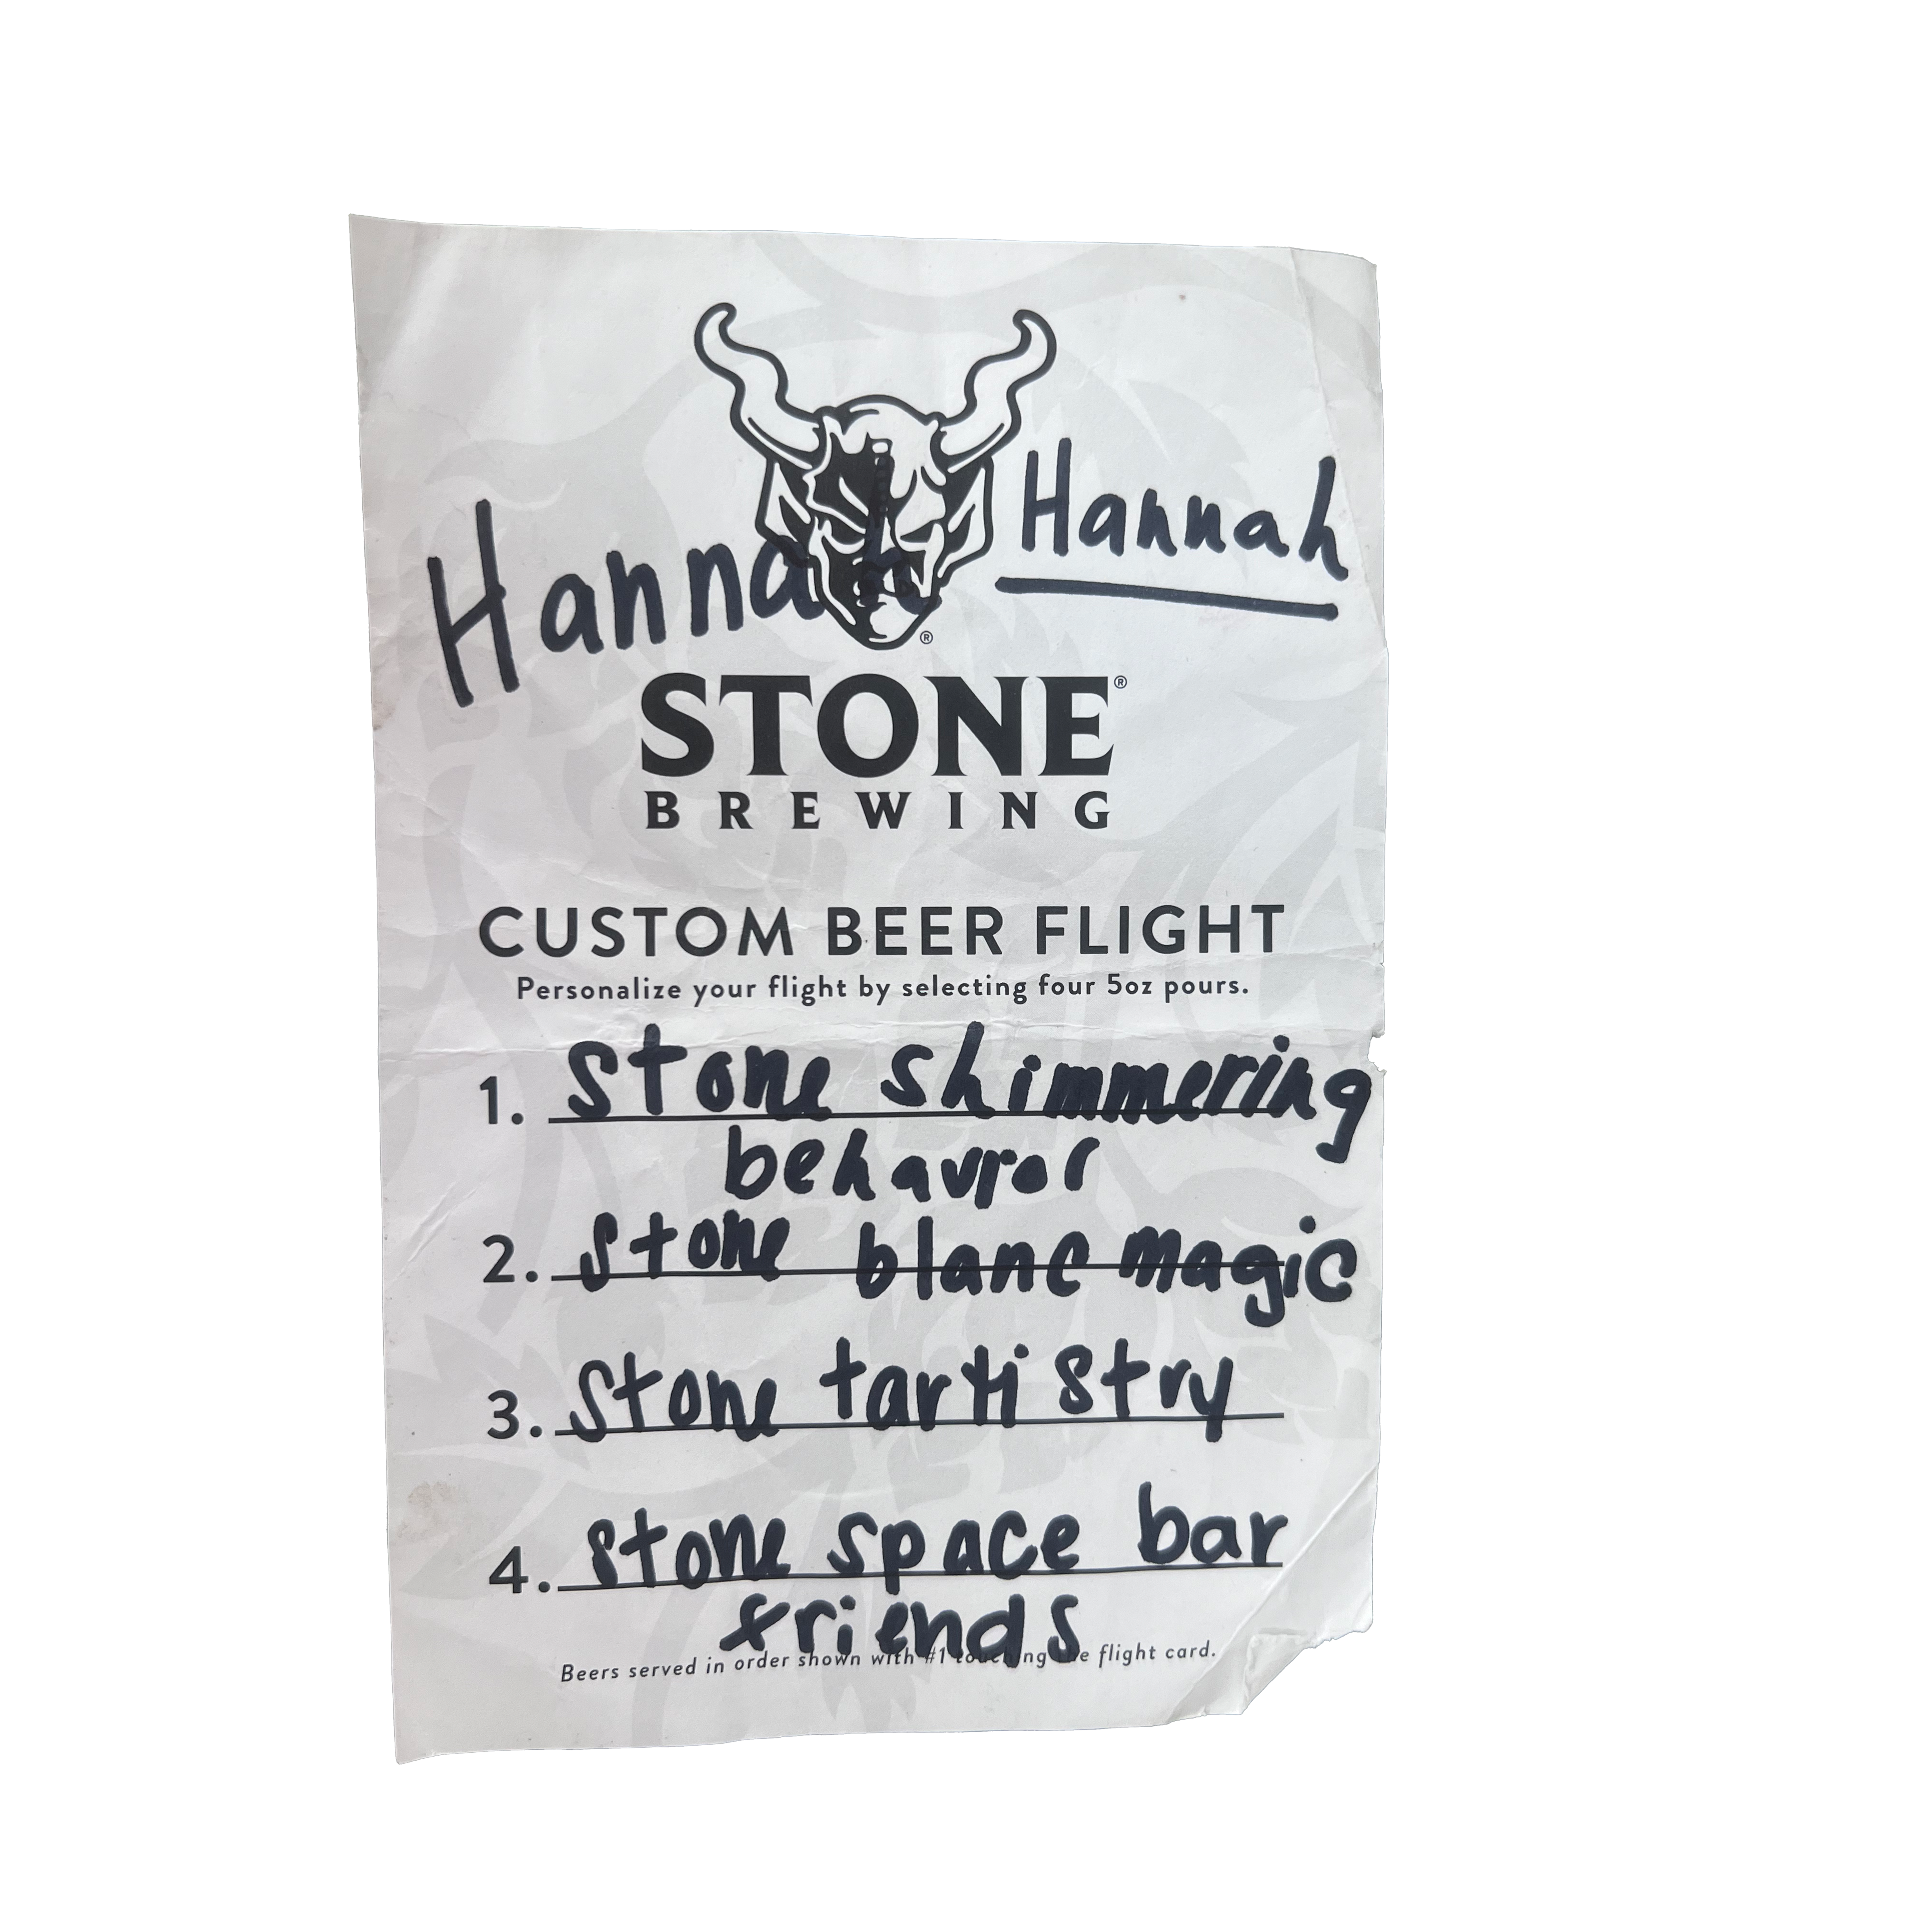 Hannah
Hannah
STONE®
BREWING
CUSTOM BEER FLIGHT
Personalize your flight by selecting four 5oz pours.
1. Stone shimmering
behavior
2. Stone blanc magic
3. Stone tartistry
4. Stone space bar
friends
Beers served in order shown with #1 touching the flight card.